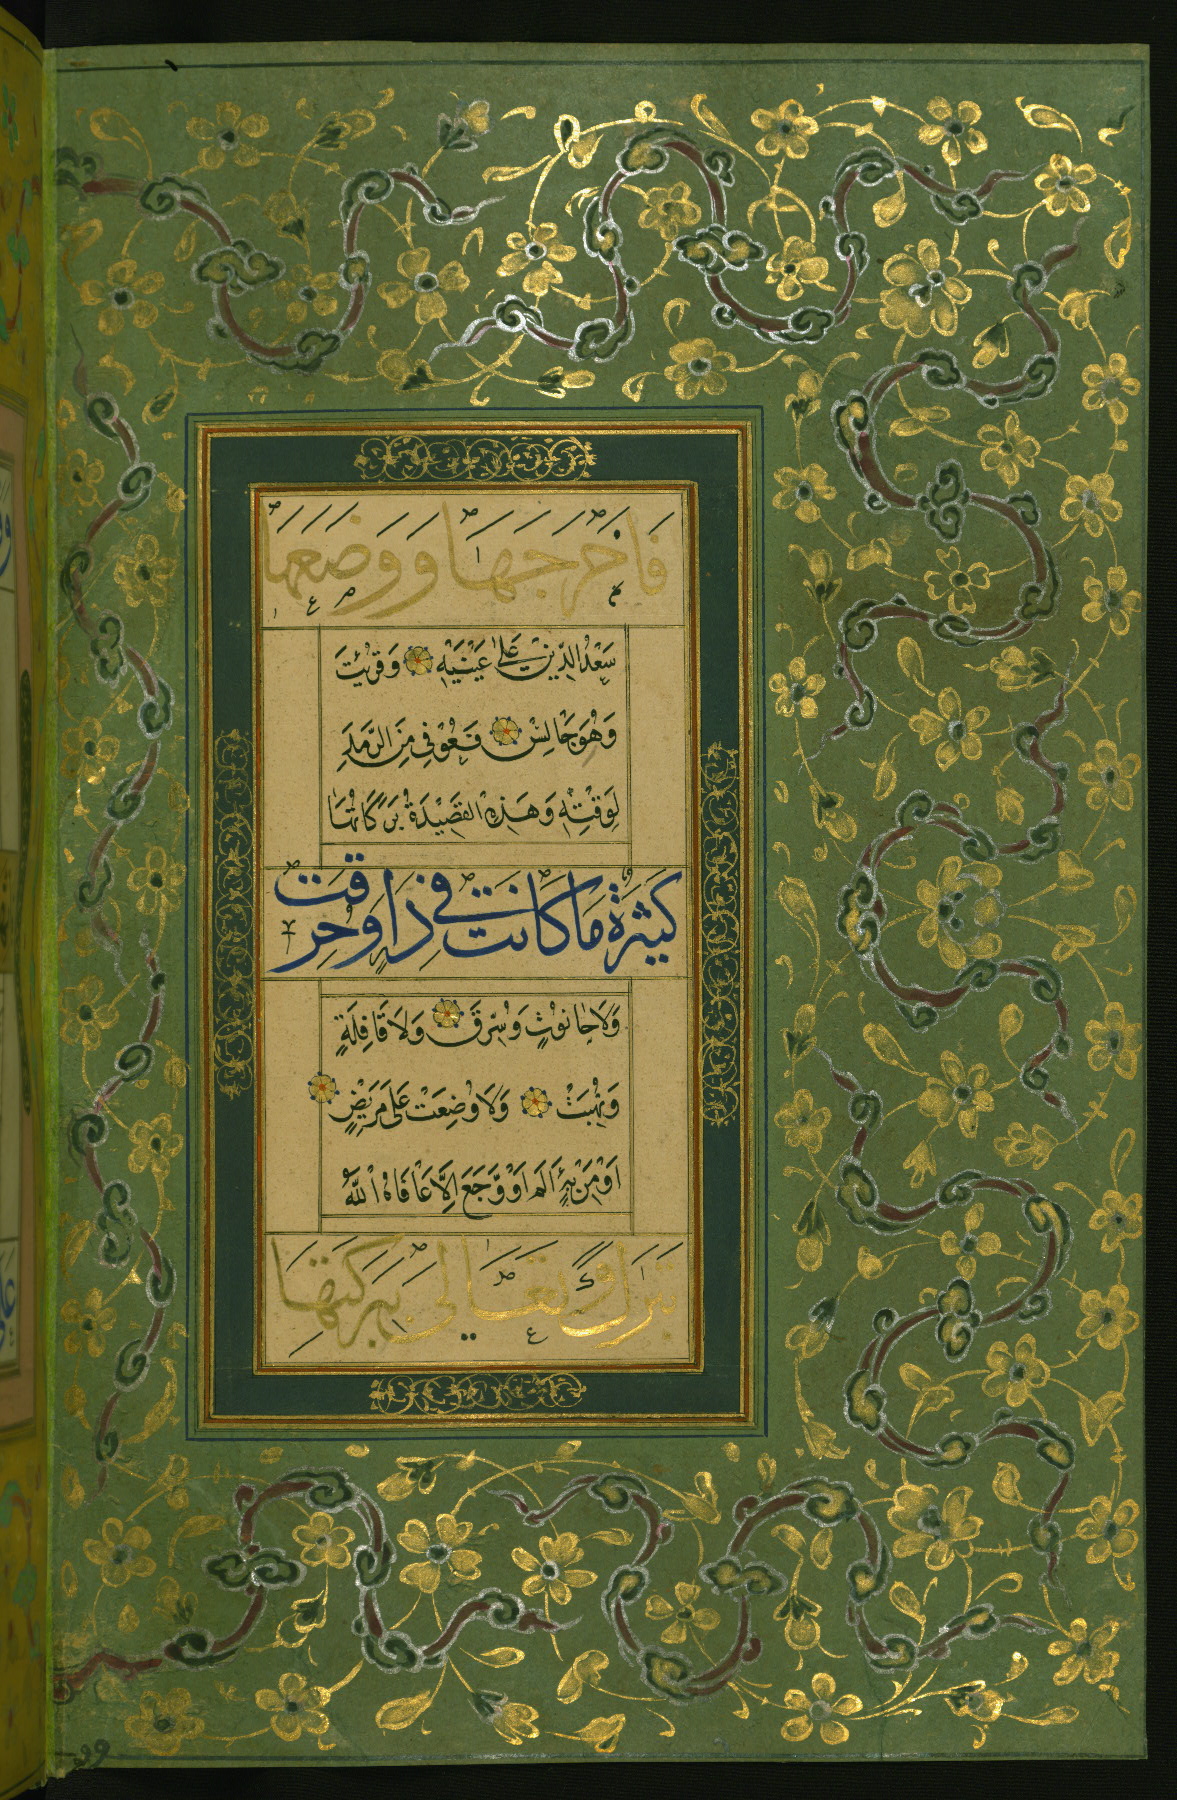 فَاَخْرَجَهَا وَوَضَعَهَا
سَعْدُ الدِّيْنِ عَلٰى عَيْنَيْهِ وَقُرِئَتْ
وَهُوَ جَالِسٌ فَعُوْفِيَ مِنَ الرَّمَدِ
لِوَقْتِهٖ وَهٰذِهِ الْقَصِيْدَةُ بَرَكَاتُهَا
كَثِيْرَةٌ مَا كَانَتْ فِيْ دَارٍ وَحُرِقَتْ
وَلَا حَانُوْتٍ وَسُرِقَ وَلَا قَافِلَةٍ
وَنُهِبَتْ وَلَا وُضِعَتْ عَلٰى مَرِيْضٍ
اَوْ مَنْ بِهٖ اَلَمٌ اَوْ وَجَعٌ اِلَّا عَافَاهُ اللّٰهُ
وَتَعَالٰى بِبَرَكَتِهَا